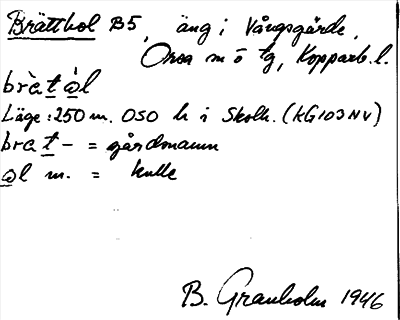 Brätthol B5, äng i Vångsgärde,
Orsa m ö tg, Kopparb. l.
brὰt ὰl
Läge: 250 m. OSO h i Skolh. (KG103NV)
brat- = gårdsnamn
ol m. = kulle
B. Granholm 1946